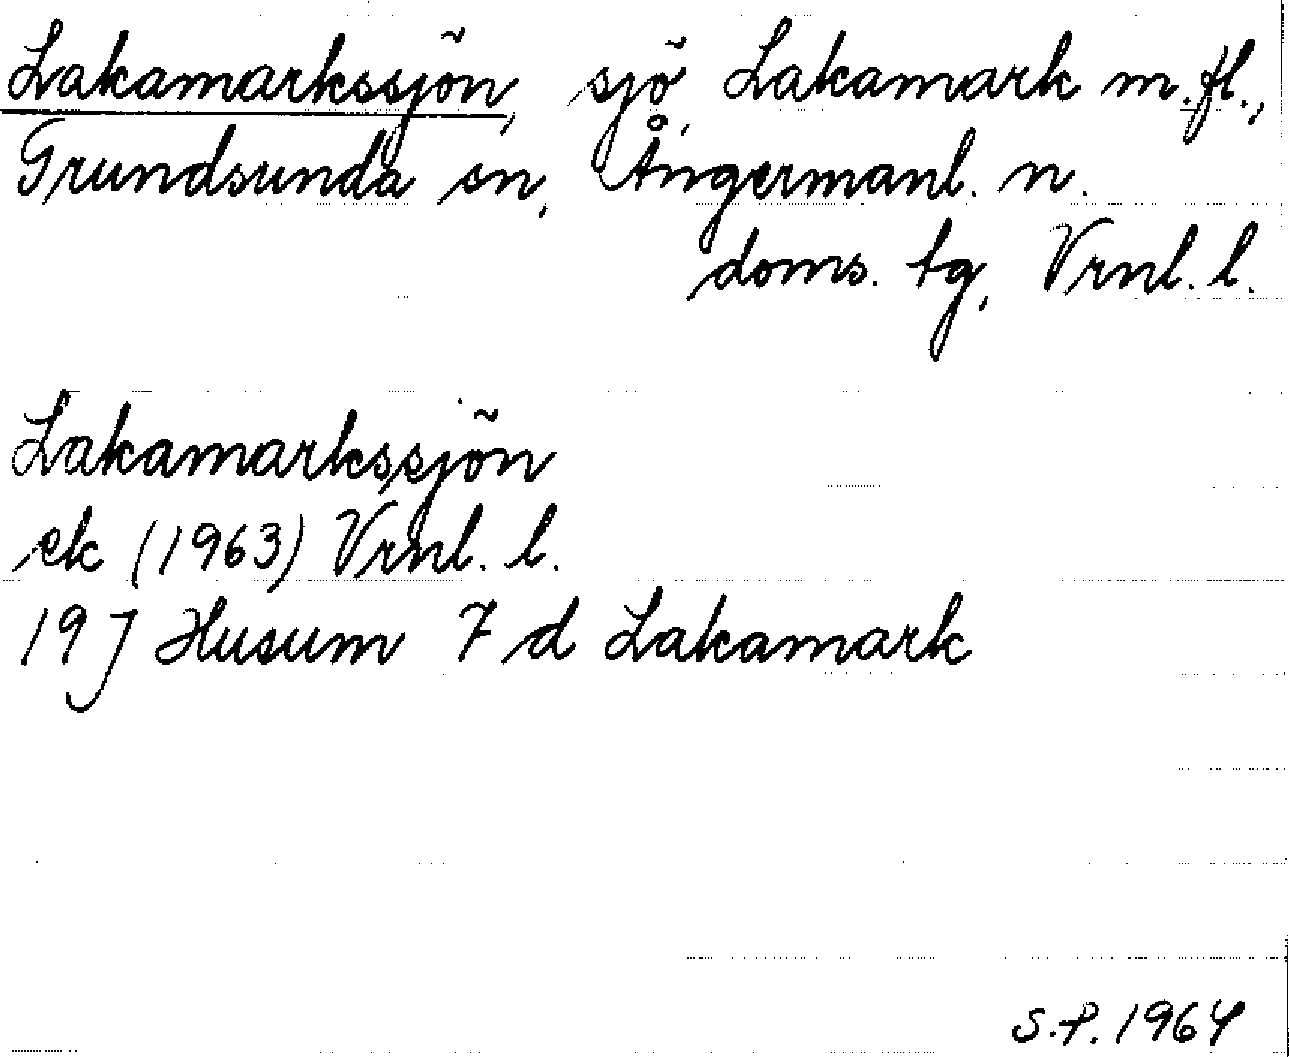 Lakamarkssjön, sjö, Lakamark m.fl.,
Grundsunda sn, Ångermanl. n.
doms. tg, Vrnl. l.
Lakamarkssjön
ek (1963) Vrnl. l.
19 J Husum 7 d Lakamark
S.P. 1964